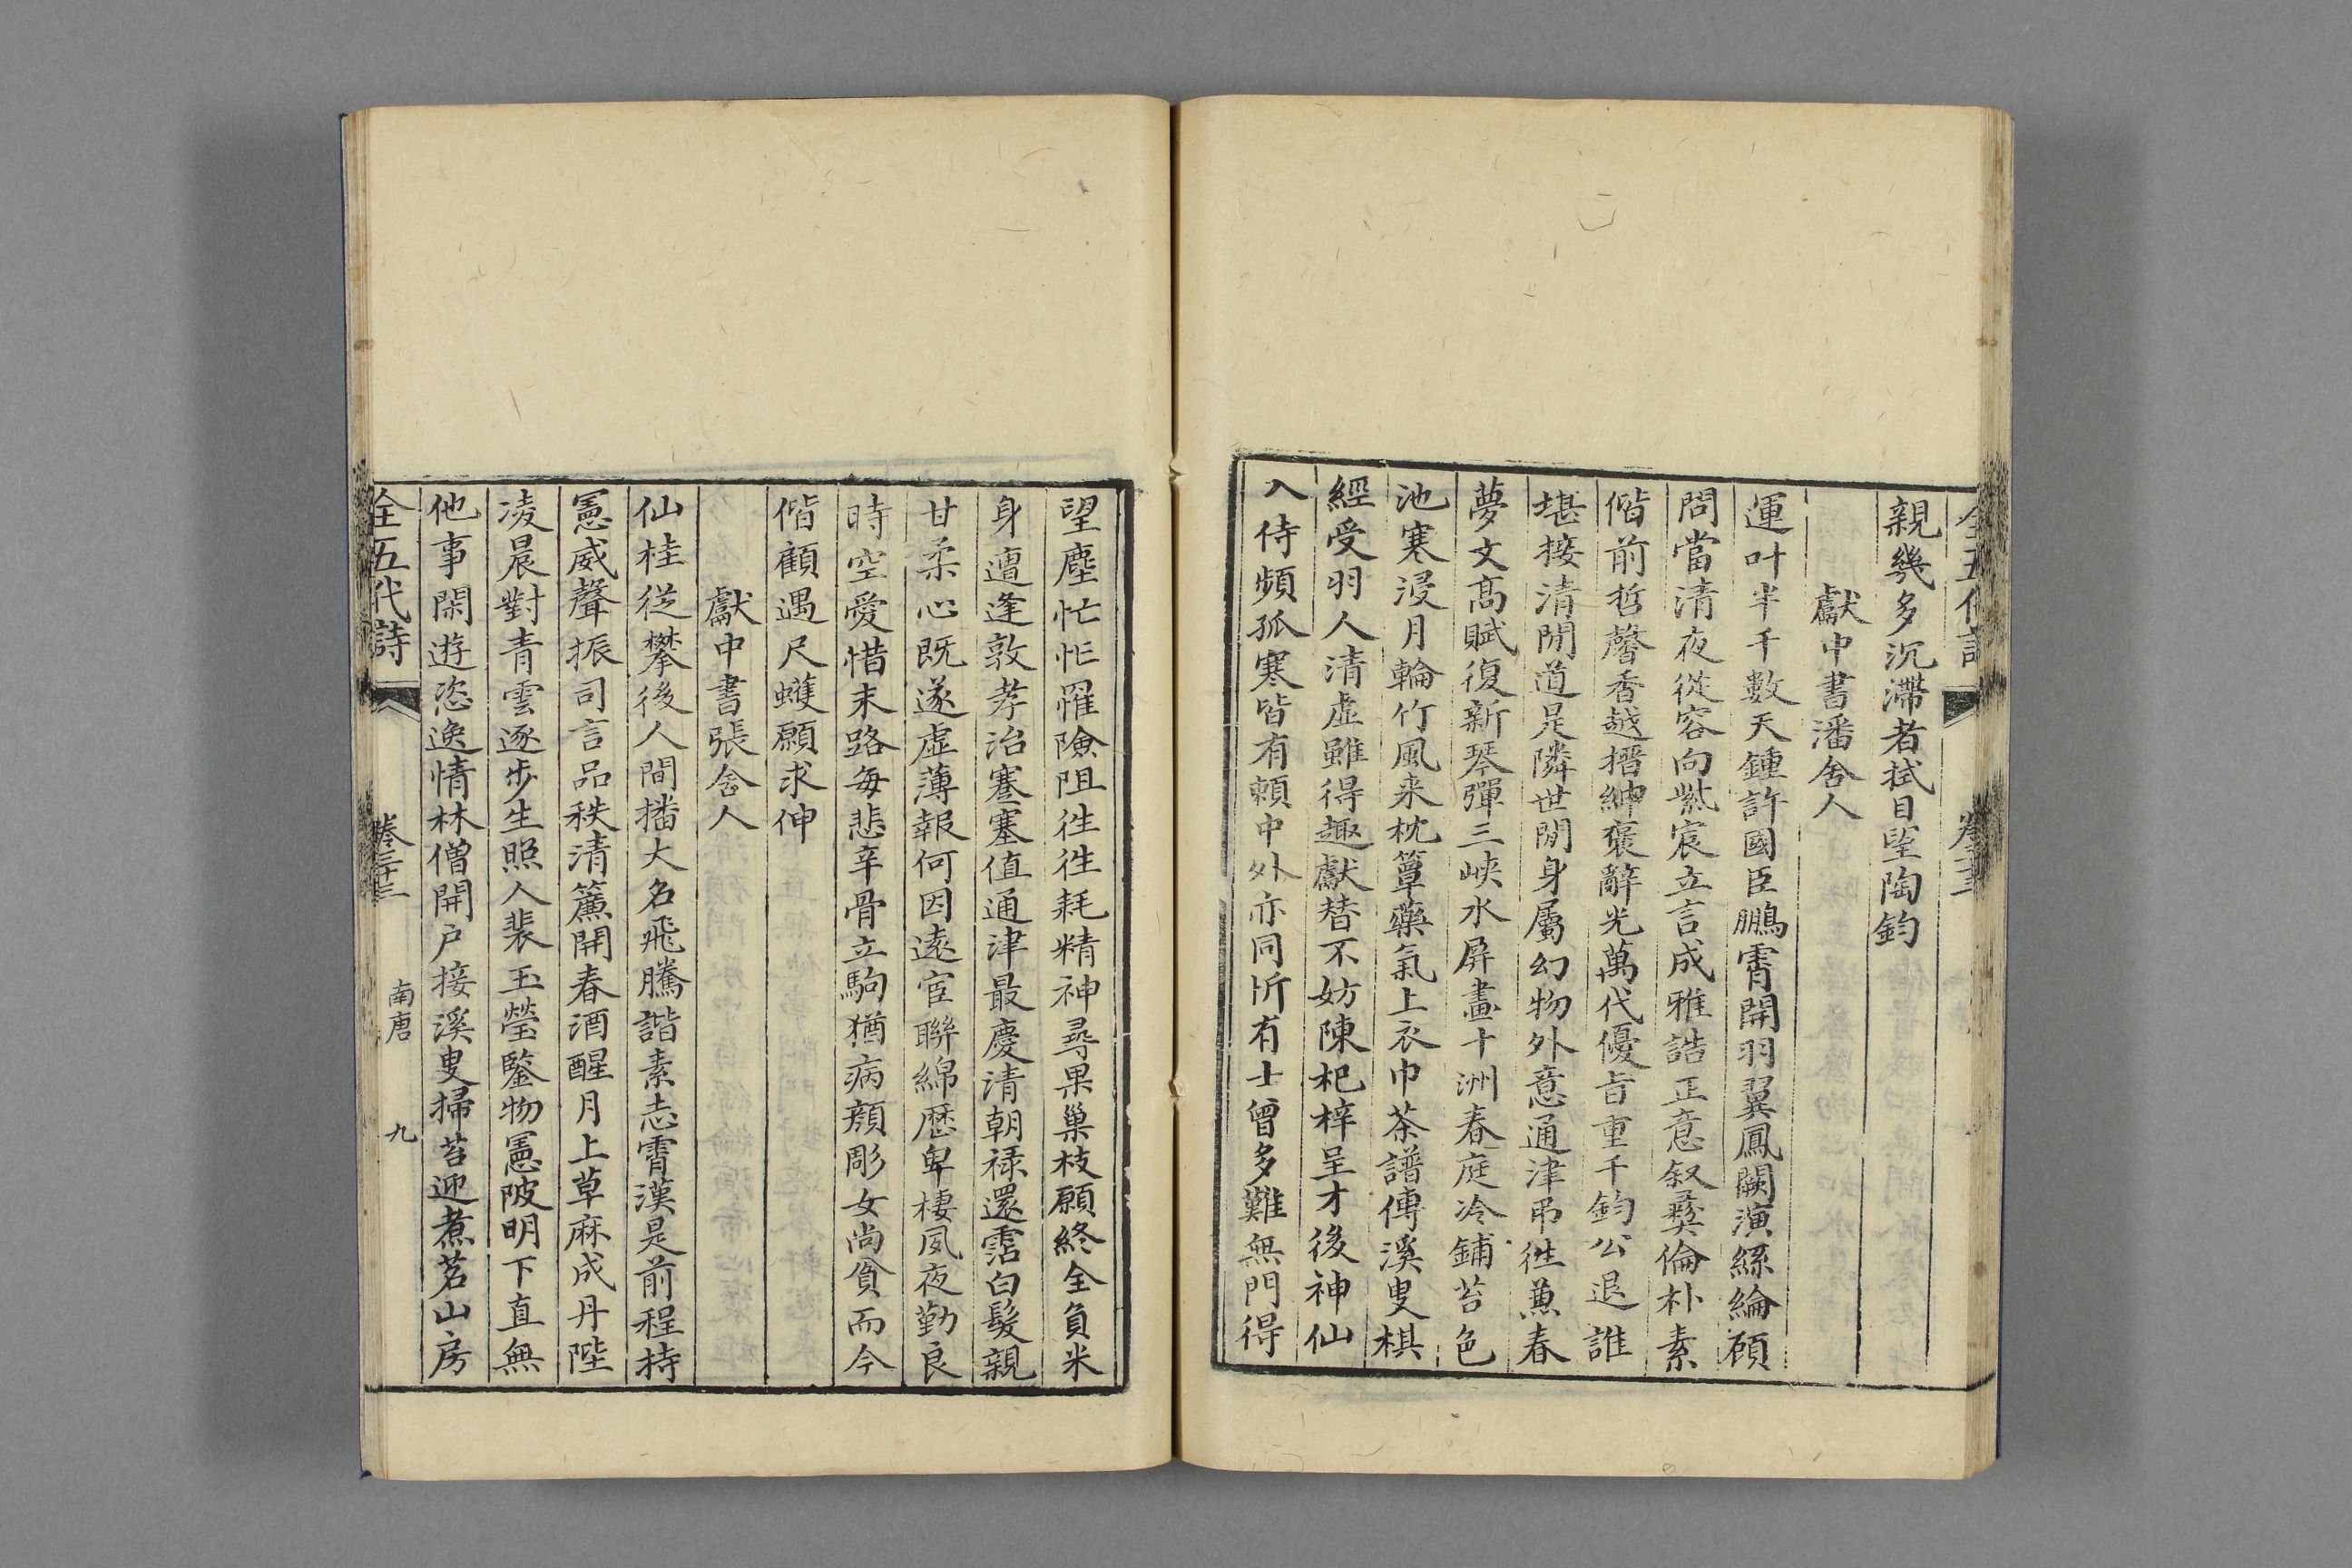 親幾多沉滯者拭目望陶鈞
獻中書潘舍人
運叶半千數天鍾許國臣鵬霄開羽翼鳳闕演絲綸顧
問當清夜從容向紫宸立言成雅誥正意叙彝倫朴素
偕前哲馨香越搢紳褒辭光萬代優旨重千鈞公退誰
堪接清閒道是隣世閒身屬幻物外意通津吊徃蕙春
夢文高賦復新琴彈三峽水屏畫十洲春庭冷鋪苔色
池寒浸月輪竹風来枕簟藥氣上衣巾茶譜傳溪叟棋
經受羽人清虛雖得趣獻替不妨陳杞梓呈才後神仙
入侍頻孤寒皆有賴中外亦同忻有士曾多難無門得
望塵忙忙罹險阻徃徃耗精神尋果巢枝願終全負米
身遭逢敦孝治蹇塞值通津最慶清朝祿還霑白髮親
甘柔心既遂虛薄報何因遠宦聯綿歷卑棲夙夜勤良
時空愛惜末路每悲辛骨立駒猶病顏彫女尚貧而今
偕顧遇尺蠖願求伸
獻中書張舍人
仙桂從攀後人間播大名飛騰諧素志霄漢是前程持
憲威聲振司言品秩清簾開春酒醒月上草麻成丹陛
凌晨對青雲逐步生照人裴玉瑩鑒物憲陂明下直無
他事閑遊恣逸情林僧開户接溪叟掃苔迎煮茗山房
全五代詩
卷三十三
南唐
九